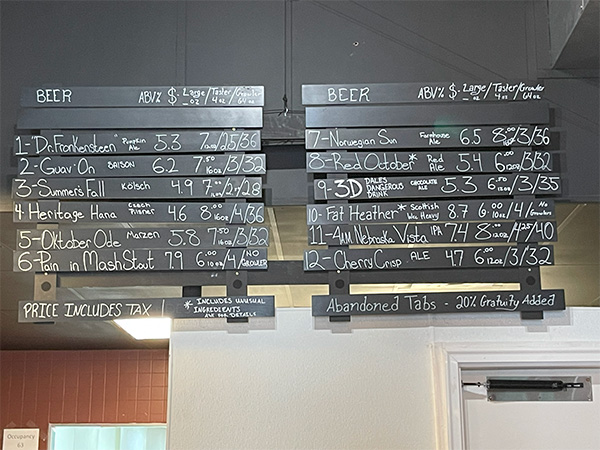 BEER ABV% $ Large/Taster/Growler
_oz 4oz 64oz
1-"Dr. Frankensteen" Pumpkin Ale 5.3
2-Guav' On SAISON 6.2 7.50 16oz/3/32
3-Summer's Fall Kölsch 4.9
4-Heritage Hana Czech Pilsner 4.6 8.00 16oz/4/36
5-Oktober Ode Marzen 5.8 7.50 16oz/3/32
6-Pain in Mash Stout 7.9 6.00 10oz/4/NO GROWLER
PRICE INCLUDES TAX!
* INCLUDES UNUSUAL
INGREDIENTS
ASK FOR DETAILS
BEER ABV% $ Large/Taster/Growler
_oz 4oz 64oz
7-Norwegian Son Farmhouse Ale 6.5 8.00/3/36
8-Red October* Red Ale 5.4 6.00 12oz/3/32
9-3D DALE'S DANGEROUS DRINK CHOCOLATE ALE 5.3 6.00/3/35
10-Fat Heather* Scottish Wee Heavy 8.7 10oz/4/No Growlers
11-4AM Nebraska Vista IPA 7.4 /40
12-Cherry Crisp ALE 4.7 6.00 12oz/3/32
Abandoned Tabs - 20% Gratuity Added
Occupancy
63